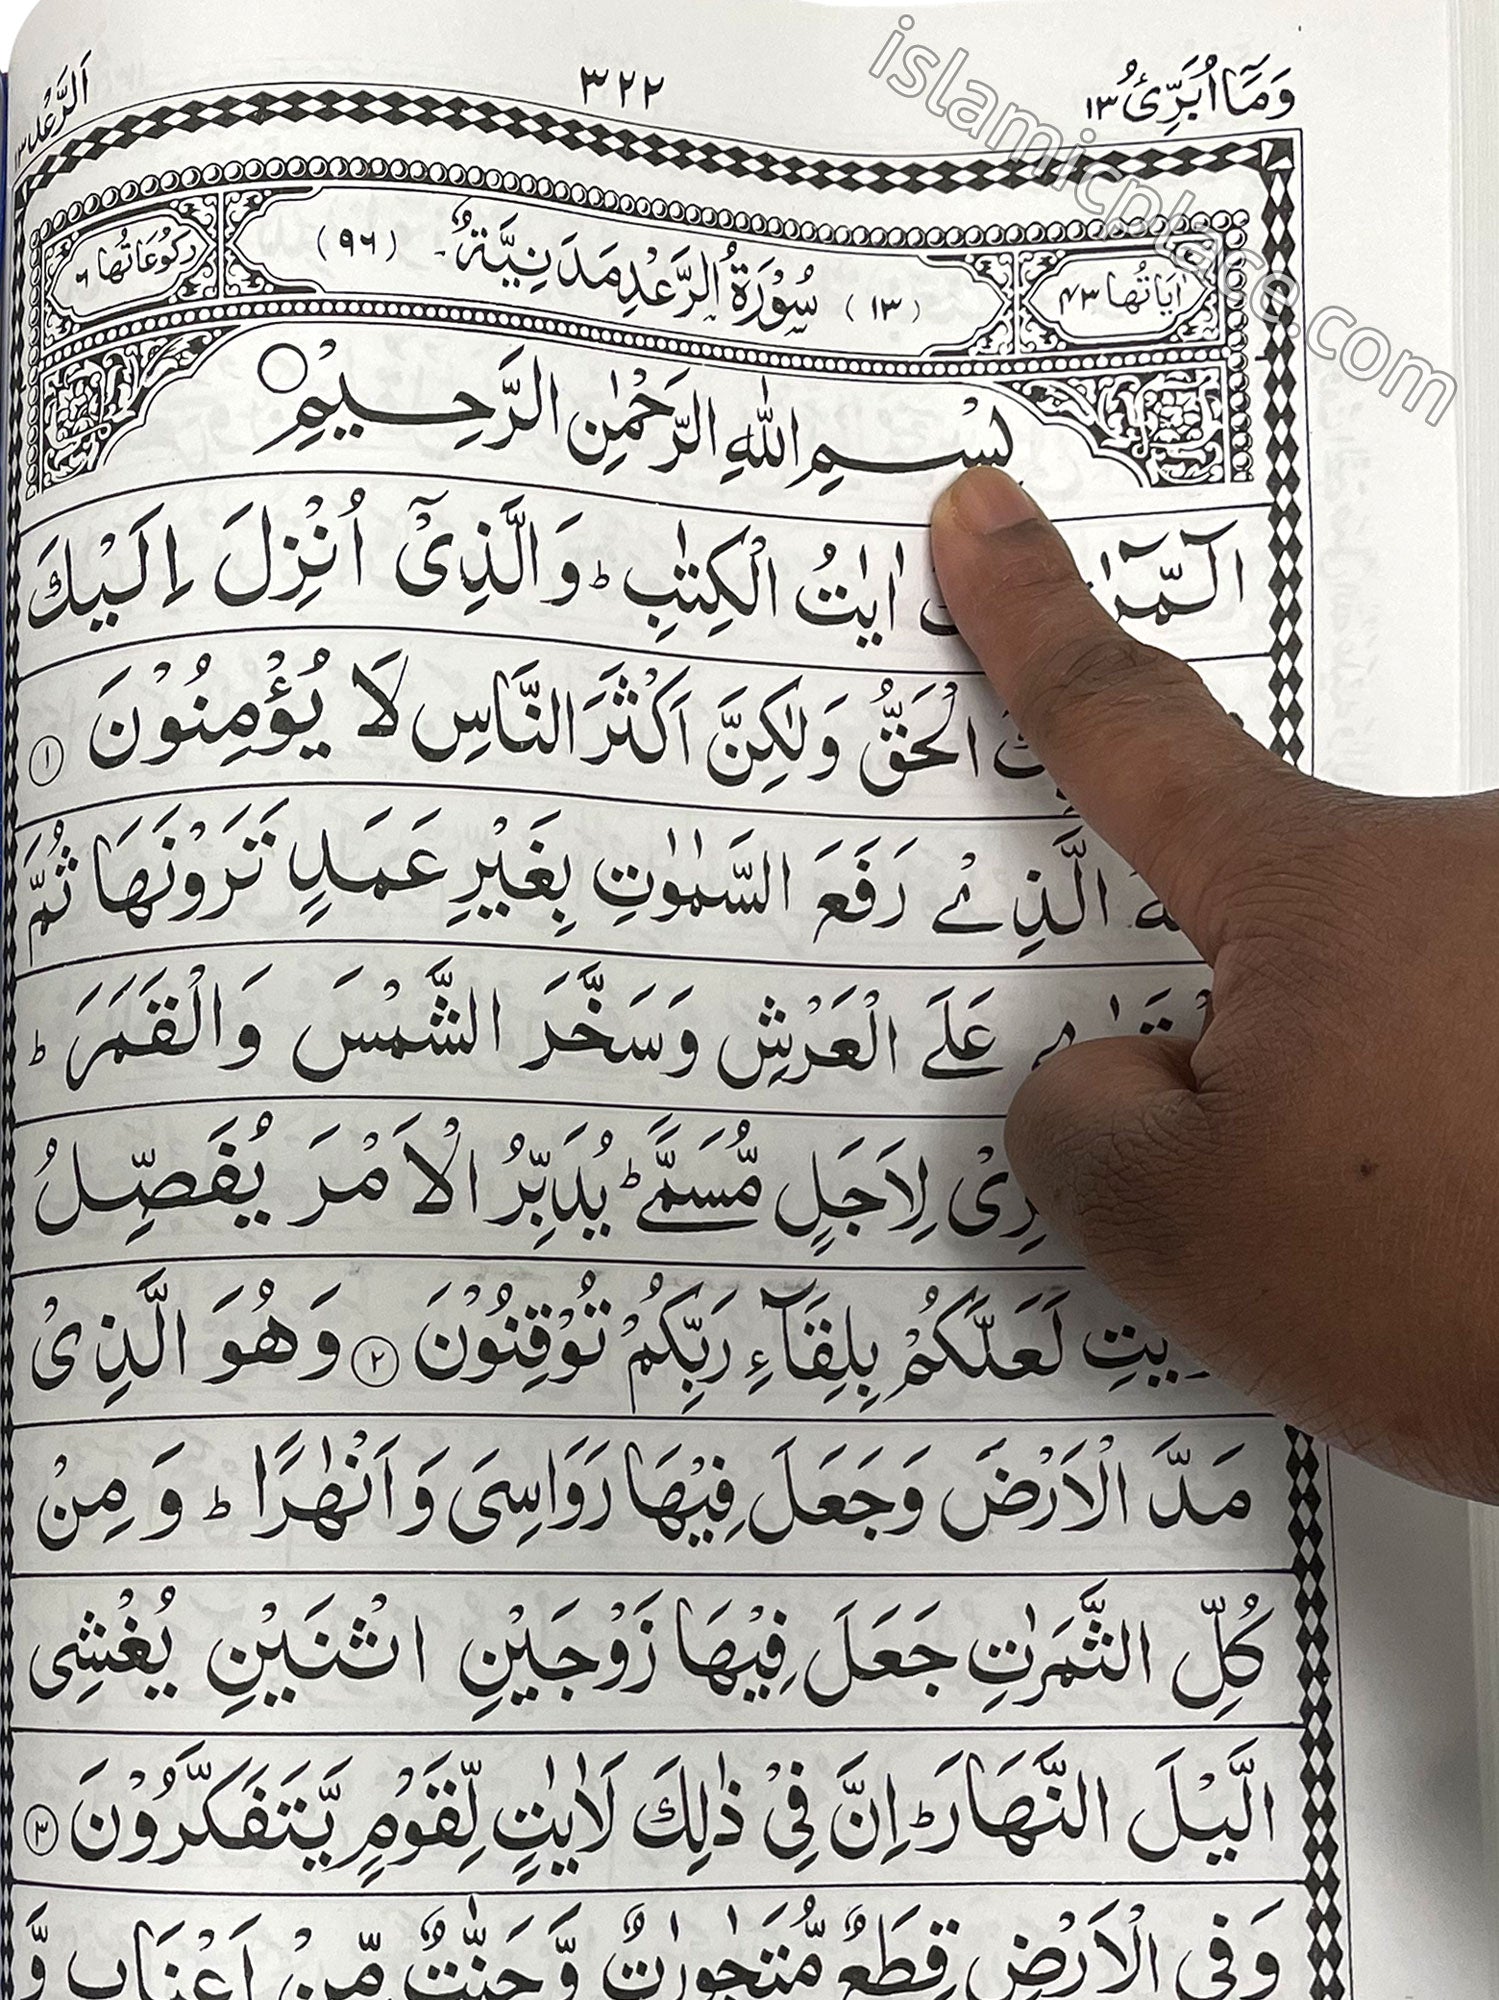 وَمَآ اُبَرِّئُ ١٣
٣٢٢
اَلرَّعْد ١٣
اٰيَاتُهَا ٤٣
(١٣) سُوْرَةُ الرَّعْدِ مَدَنِيَّةٌ (٩٦)
رُكُوْعَاتُهَا ٦
بِسْمِ اللّٰهِ الرَّحْمٰنِ الرَّحِيْمِ
الٓمّٓرٰ اٰيٰتُ الْكِتٰبِ ؕ وَالَّذِيْٓ اُنْزِلَ اِلَيْكَ
الْحَقُّ وَلٰكِنَّ اَكْثَرَ النَّاسِ لَا يُؤْمِنُوْنَ ١
الَّذِيْ رَفَعَ السَّمٰوٰتِ بِغَيْرِ عَمَدٍ تَرَوْنَهَا ثُمَّ
عَلَى الْعَرْشِ وَسَخَّرَ الشَّمْسَ وَالْقَمَرَ ؕ
لِاَجَلٍ مُّسَمًّى ؕ يُدَبِّرُ الْاَمْرَ يُفَصِّلُ
لَعَلَّكُمْ بِلِقَآءِ رَبِّكُمْ تُوْقِنُوْنَ ٢ وَهُوَ الَّذِيْ
مَدَّ الْاَرْضَ وَجَعَلَ فِيْهَا رَوَاسِيَ وَاَنْهٰرًا ؕ وَمِنْ
كُلِّ الثَّمَرٰتِ جَعَلَ فِيْهَا زَوْجَيْنِ اثْنَيْنِ يُغْشِي
الَّيْلَ النَّهَارَ ؕ اِنَّ فِيْ ذٰلِكَ لَاٰيٰتٍ لِّقَوْمٍ يَّتَفَكَّرُوْنَ ٣
وَفِي الْاَرْضِ قِطَعٌ مُّتَجٰوِرٰتٌ وَّجَنّٰتٌ مِّنْ اَعْنَابٍ وَّ
islamicplace.com